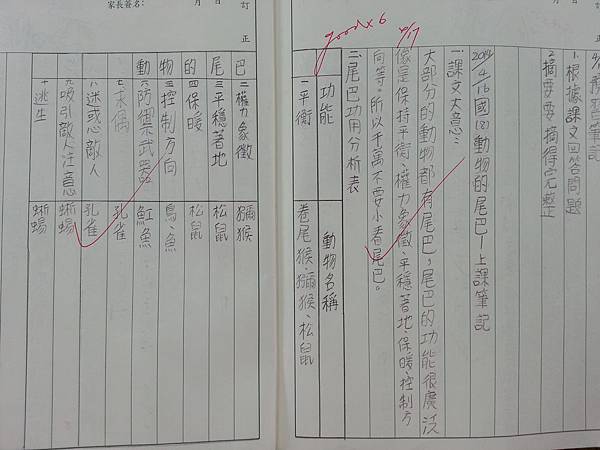 根據課文回答問題
2.摘要要摘得完整
2014/4/16國(8)動物的尾巴－上課筆記
一.課文大意：
大部分的動物都有尾巴，尾巴的功能很廣泛
像是保持平衡、權力象徵、平穩著地、保暖、控制方
向等。所以千萬不要小看尾巴。
二.尾巴功用分析表
功能 動物名稱
一平衡 卷尾猴、獼猴、松鼠
good×6
4/17
家長簽名：
月 日
訂正
月 日
訂正
動物的尾巴
二權力象徵 獼猴
三平穩著地 松鼠
四保暖 松鼠
五控制方向 鳥、魚
六防禦武器 魟魚
七求偶 孔雀
八迷惑敵人 孔雀
九吸引敵人注意 蜥蜴
十逃生 蜥蜴